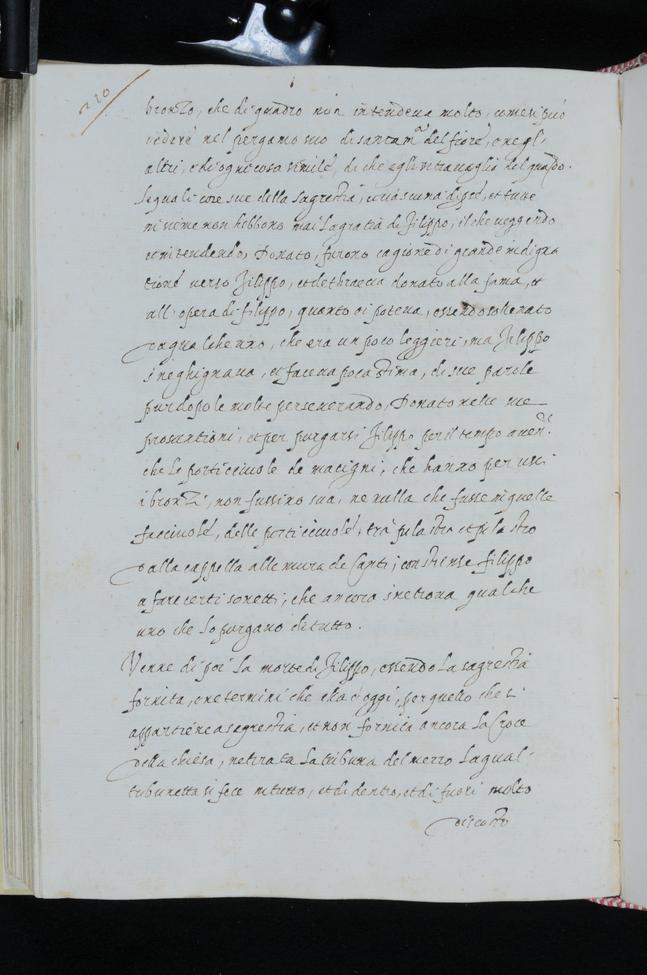 210
bronzo, che di quadro non intendeua molto, come si può
uedere nel pergamo suo di santa m.ª del fiore, e negl'
altri, e di ogni cosa simile, di che egli si trauaglio
le quali cose sue della sagrestia, ciascuna di se, et tutte
insieme non hebbono mai la gratia di Filippo, il che ueggendo
et intendendo, Donato, furono cagione di grande indigna
tione uerso Filippo, et detraeua donato alla fama, et
all'opera di filippo, quanto ei poteua, essendo solleuato
da qualche uno, che era un poco leggieri, ma Filippo
si neghignaua, et faceua poca stima, di sue parole
pur dopo le molte perseuerando, Donato nelle sue
prosuntioni, et per purgarsi Filippo per il tempo auen.ʳᵉ
che le porticciuole de macigni, che hanno per usci
i bronzi, non fussino sua, ne nulla che fusse in quelle
facciuole, delle porticciuole, tra pilastro et pilastro
dalla cappella alle mura de Canti, constrinse filippo
a fare certi sonetti, che ancora sine troua qualche
uno che lo purgano di tutto.
Venne di poi la morte di Filippo, essendo la sagrestia
fornita, e ne termini che ella è oggi, per quello che s'
appartiene a sagrestia, et non fornita ancora la Croce
della chiesa, ne tirata la tribuna del mezzo la qual'
tribunetta si fece in tutto, et di dentro, et di fuori molto
discosto